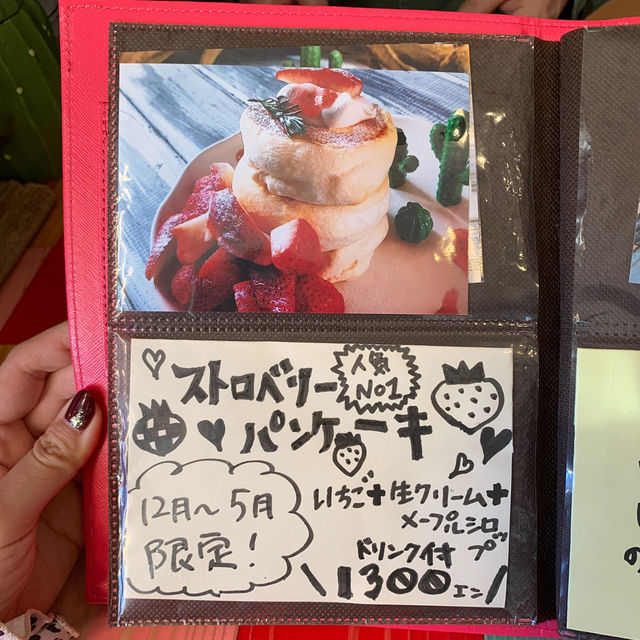 ストロベリー
人気
No1
パンケーキ
12月〜5月
限定!
いちご+生クリーム+
メープルシロ
ップ
ドリンク付き
1300エン
の